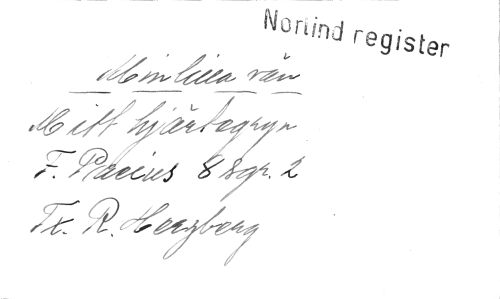 Norlind register
Min lilla vän
Mitt hjärtegryn
F. Pacius 8 sgr. 2
Tx. R. Herzberg